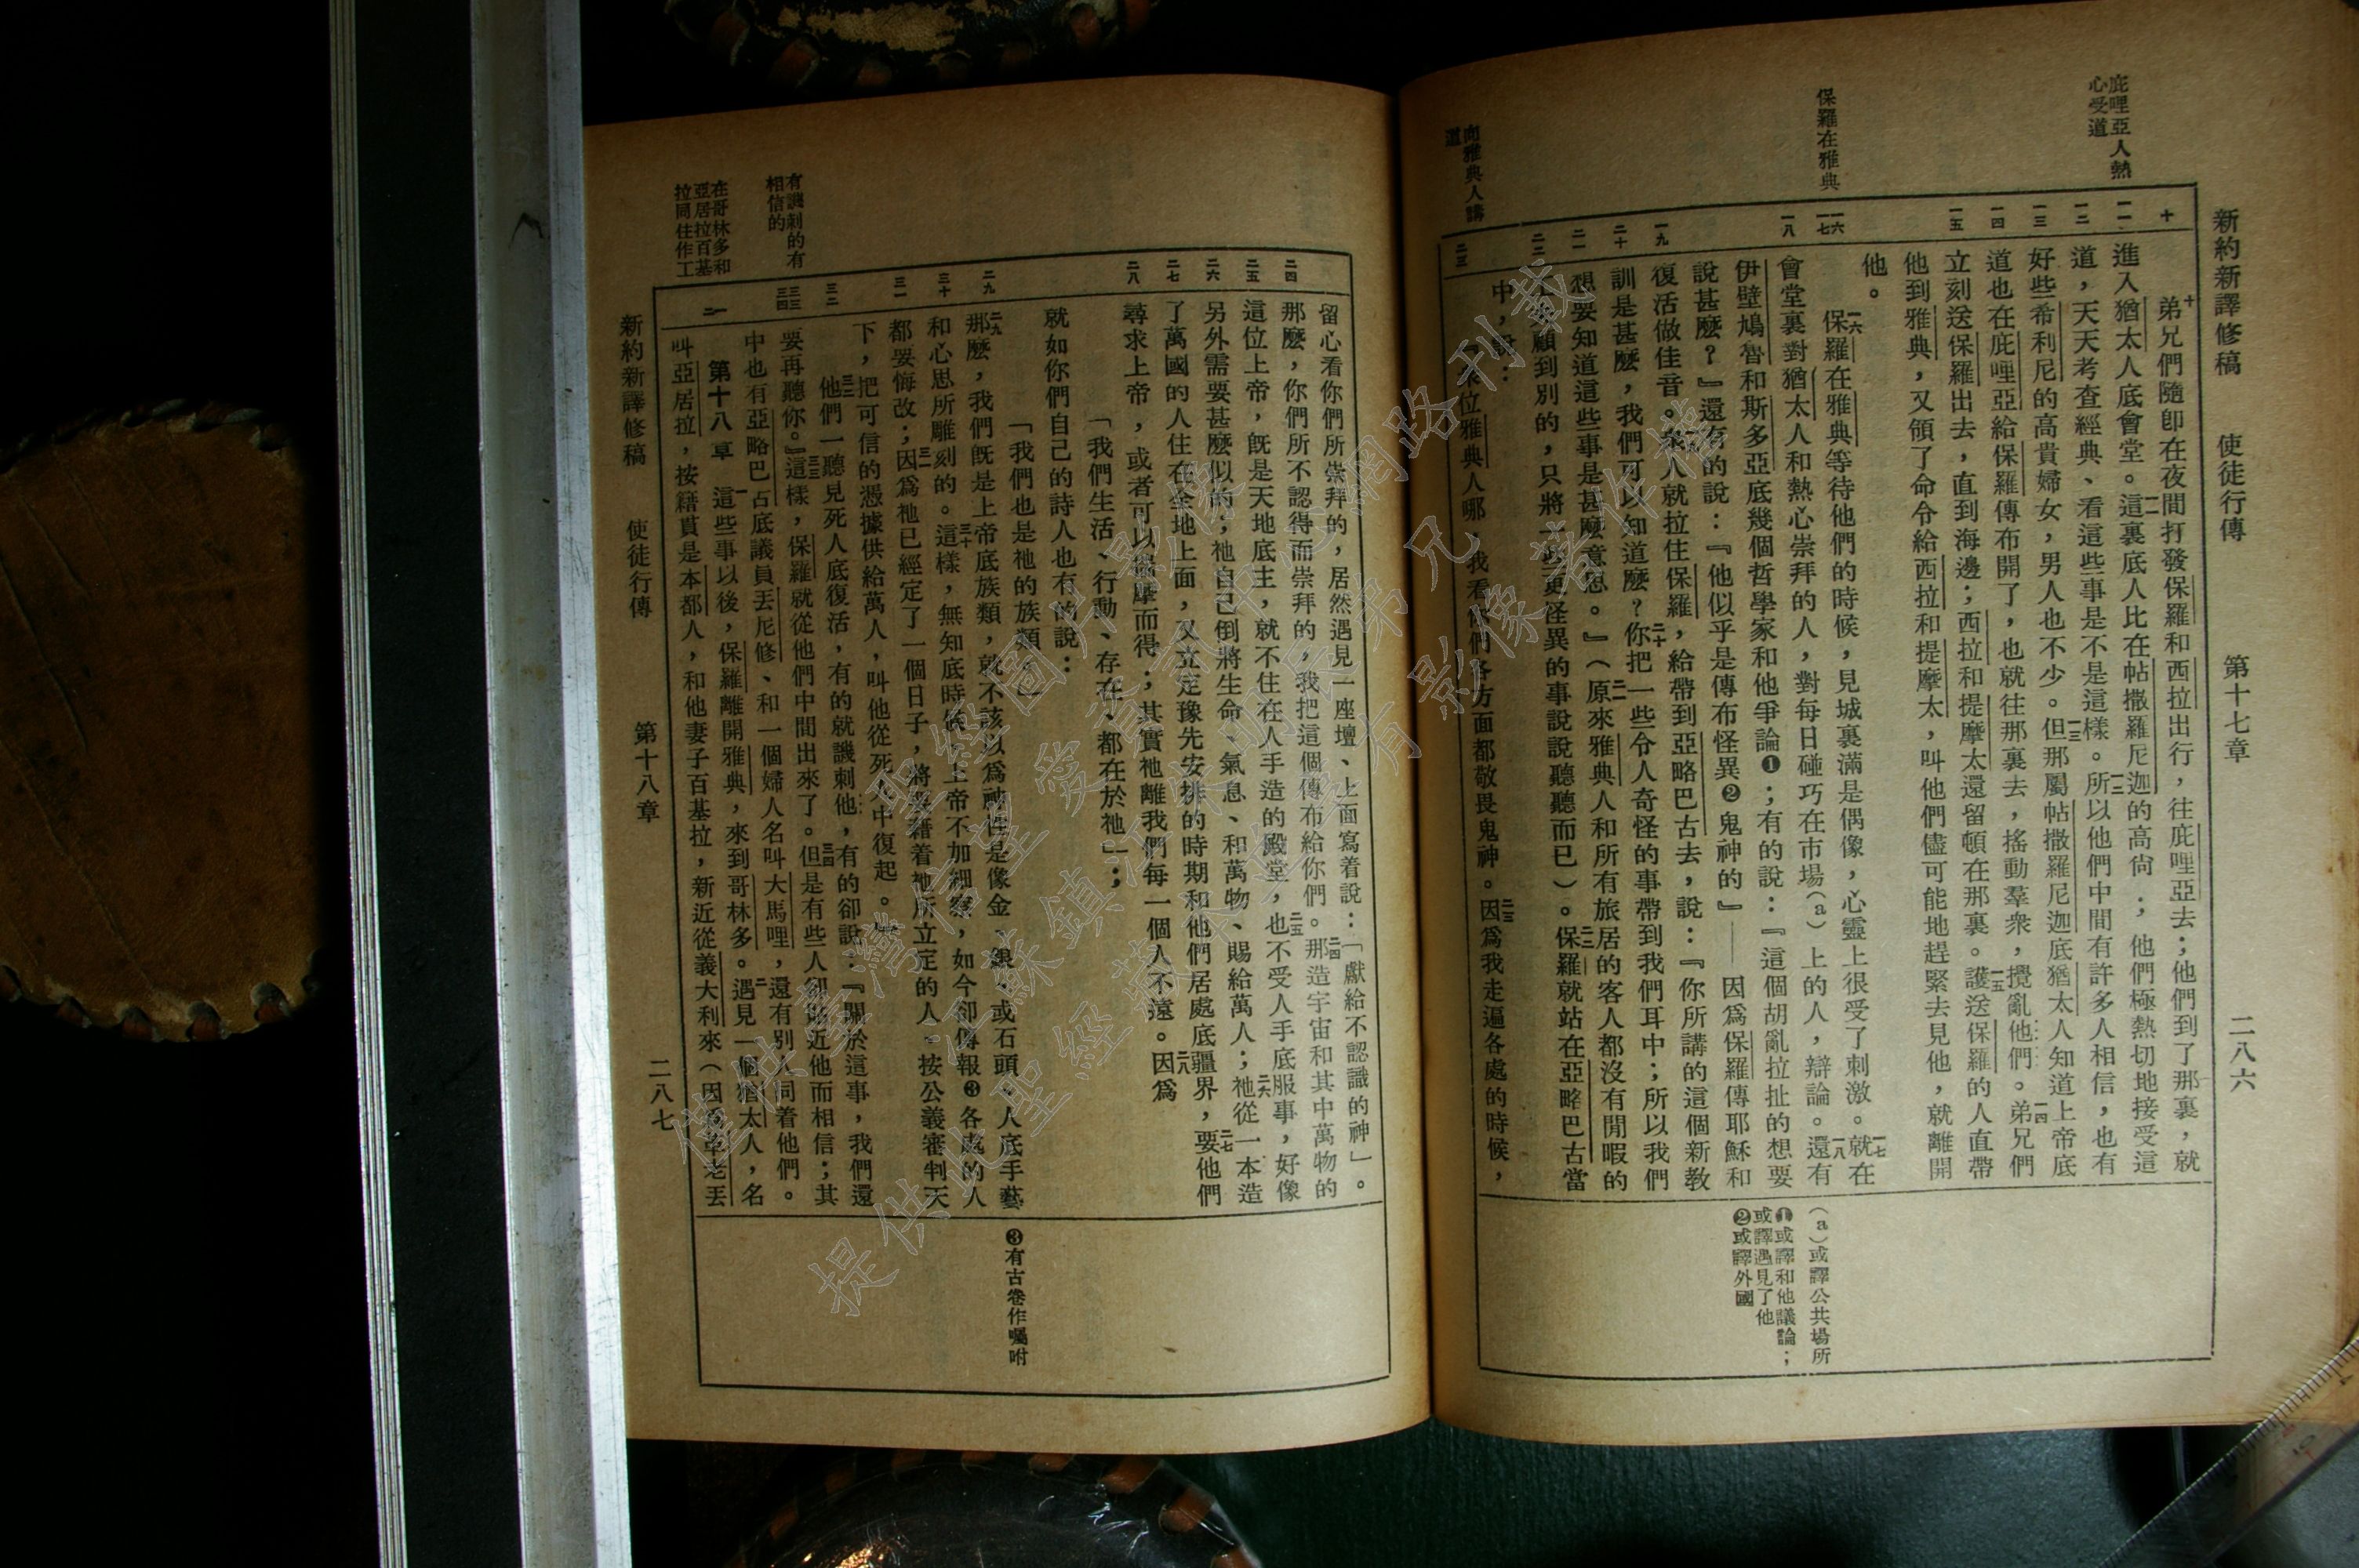 新約新譯修稿　使徒行傳　第十七章　二八六
庇哩亞人熱
心受道
保羅在雅典
向雅典人講
道
十
一一
一二
一三
一四
一五
一六
一七
一八
一九
二十
二一
二二
二三
十弟兄們隨卽在夜間打發保羅和西拉出行，往庇哩亞去；他們到了那裏，就
進入猶太人底會堂。一一這裏底人比在帖撒羅尼迦的高尙；他們極熱切地接受這
道，天天考查經典、看這些事是不是這樣。一二所以他們中間有許多人相信，也有
好些希利尼的高貴婦女，男人也不少。一三但那屬帖撒羅尼迦底猶太人知道上帝底
道也在庇哩亞給保羅傳布開了，也就往那裏去，搖動羣衆，攪亂他們。一四弟兄們
立刻送保羅出去，直到海邊；西拉和提摩太還留頓在那裏。一五護送保羅的人直帶
他到雅典，又領了命令給西拉和提摩太，叫他們儘可能地趕緊去見他，就離開
他。
一六保羅在雅典等待他們的時候，見城裏滿是偶像，心靈上很受了刺激。一七就在
會堂裏對猶太人和熱心崇拜的人，對每日碰巧在市場（a）上的人，辯論。一八還有
伊壁鳩魯和斯多亞底幾個哲學家和他爭論❶；有的說：『這個胡亂拉扯的想要
說甚麼？』還有的說：『他似乎是傳布怪異❷鬼神的』——因爲保羅傳耶穌和
復活做佳音。人就拉住保羅，給帶到亞略巴古去，說：『你所講的這個新教
訓是甚麼，我們可以知道麼？二十你把一些令人奇怪的事帶到我們耳中；所以我們
想要知道這些事是甚麼意思。』二一（原來雅典人和所有旅居的客人都沒有閒暇的
顧到別的，只將一些更怪異的事說說聽聽而已）。二二保羅就站在亞略巴古當
中，說：
位雅典人哪，我看你們各方面都敬畏鬼神。二三因爲我走遍各處的時候，
（a）或譯公共場所
❶或譯和他議論；
或譯遇見了他
❷或譯外國
二四
二五
二六
二七
二八
二九
三十
三一
三二
三三
三四
一
二
留心看你們所崇拜的，居然遇見一座壇、上面寫着說：「獻給不認識的神」。
那麼，你們所不認得而崇拜的，我把這個傳布給你們。二四那造宇宙和其中萬物的
這位上帝，旣是天地底主，就不住在人手造的殿堂，二五也不受人手底服事，好像
另外需要甚麼似的；祂自己倒將生命、氣息、和萬物、賜給萬人；二六祂從一本造
了萬國的人住在全地上面，又立定豫先安排的時期和他們居處底疆界，二七要他們
尋求上帝，或者可以揣摩而得；其實祂離我們每一個人不遠。二八因爲
「我們生活、行動、存在、都在於祂」；
就如你們自己的詩人也有的說：
「我們也是祂的族類。」
二九那麼，我們旣是上帝底族類，就不該以爲神性是像金、銀、或石頭、人底手藝
和心思所雕刻的。三十這樣，無知底時候、上帝不加細察，如今卻傳報❸各處的人
都要悔改；三一因爲祂已經定了一個日子，將要藉着祂所立定的人、按公義審判天
下，把可信的憑據供給萬人，叫他從死人中復起。』
三二他們一聽見死人底復活，有的就譏刺他，有的卻說：『關於這事，我們還
要再聽你。』三三這樣，保羅就從他們中間出來了。三四但是有些人卻貼近他而相信；其
中也有亞略巴古底議員丟尼修、和一個婦人名叫大馬哩，還有別人同着他們。
第十八章　一這些事以後，保羅離開雅典，來到哥林多。二遇見一個猶太人，名
叫亞居拉，按籍貫是本都人，和他妻子百基拉，新近從義大利來（因爲革老丟
❸有古卷作囑咐
有譏刺的有
相信的
在哥林多和
亞居拉百基
拉同住作工
新約新譯修稿　使徒行傳　第十八章　二八七